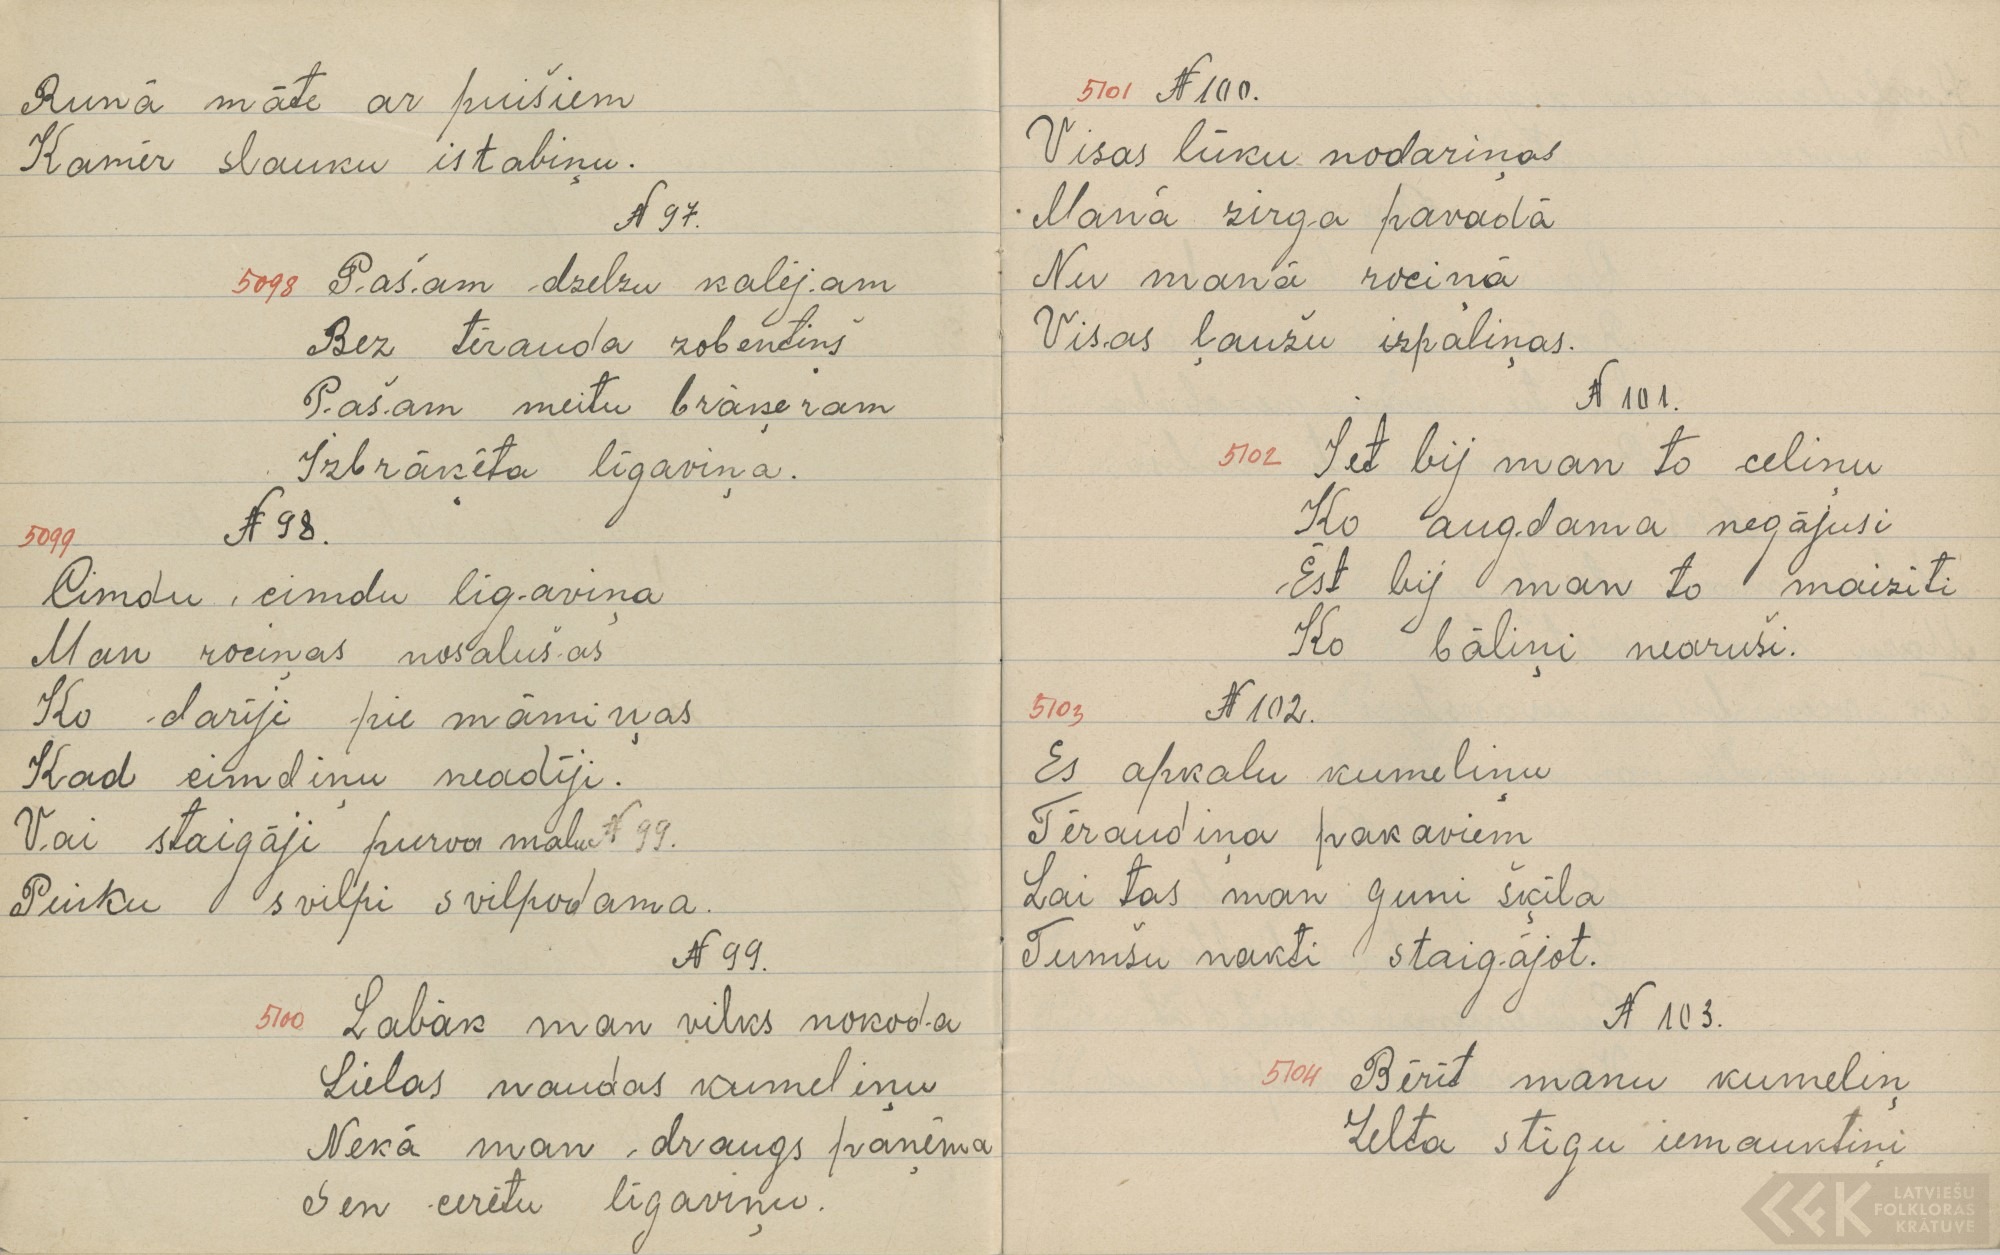 Runā māte ar puišiem
Kamēr slauku istabiņu.
N 97.
5098 Pašam dzelzu kalējam
Bez tērauda zobentiņš
Pašam meitu brāķeram
Izbrāķēta līgaviņa.
5099 N 98.
Cimdu, cimdu līgaviņa
Man rociņas nosalušas
Ko darīji pie māmiņas
Kad cimdiņu neadīji.
Vai staigāji purva malu N 99.
Puiku svilpi svilpodama.
N 99.
5100 Labāk man vilks nokoda
Lielas naudas kumeliņu
Nekā man draugs paņēma
Sen cerētu līgaviņu.
5101 N 100.
Visas lūku nodariņas
Manā zirga pavadā
Nu manā rociņā
Visas ļaužu izpaliņas.
N 101.
5102 Iet bij man to celiņu
Ko augdama negājusi
Ēst bij man to maiziti
Ko bāliņi nearuši.
5103 N 102.
Es apkalu kumeliņu
Tēraudiņa pakaviem
Lai tas man guni šķīla
Tumšu nakti staigājot.
N 103.
5104 Bērīt manu kumeliņ
Zelta stīgu iemauktiņi
LATVIEŠU
FOLKLORAS
KRĀTUVE